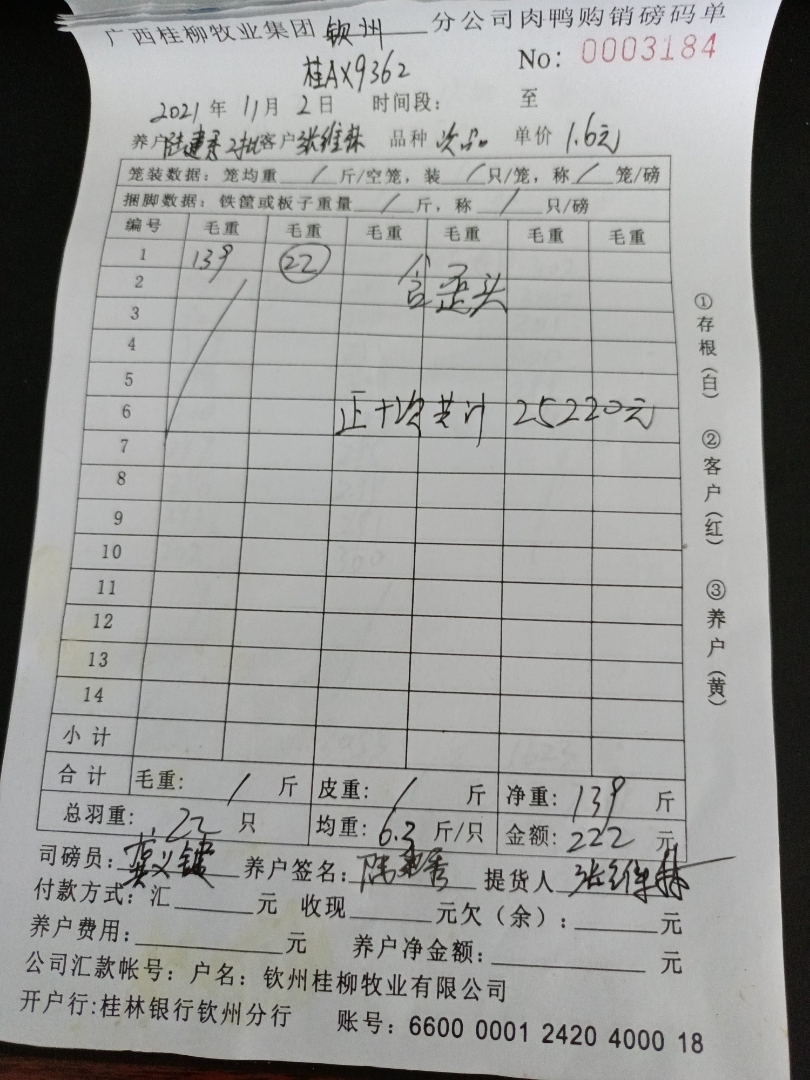 广西桂柳牧业集团 钦州 分公司肉鸭购销磅码单
桂AX9362 No: 0003184
2021年 11月 2日 时间段: 至
养户 陆建秀2批 客户 张维林 品种 次品 单价 1.6元
笼装数据: 笼均重 / 斤/空笼, 装 / 只/笼, 称 / 笼/磅
捆脚数据: 铁筐或板子重量 / 斤, 称 / 只/磅
编号 毛重 毛重 毛重 毛重 毛重 毛重
1 139 22
2 含歪头
3
4
5
6 正+次共计 25220元
7
8
9
10
11
12
13
14
小计
合计 毛重: / 斤 皮重: / 斤 净重: 139 斤
总羽重: 22 只 均重: 6.3 斤/只 金额: 222 元
司磅员: 养户签名: 陆建秀 提货人 张维林
付款方式: 汇 元 收现 元欠(余): 元
养户费用: 元 养户净金额: 元
公司汇款帐号: 户名: 钦州桂柳牧业有限公司
开户行:桂林银行钦州分行 账号: 6600 0001 2420 4000 18
①存根(白) ②客户(红) ③养户(黄)